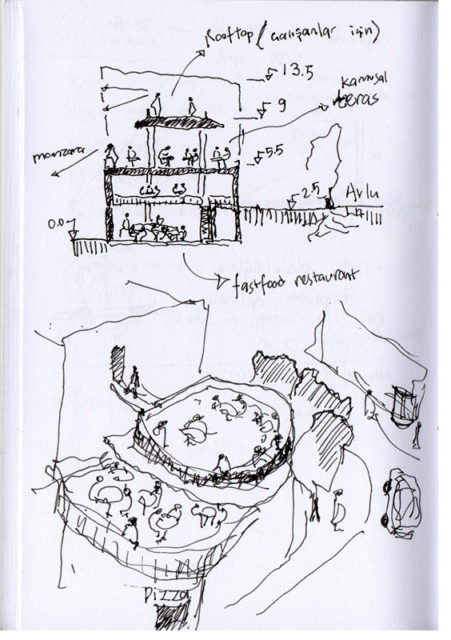 Rooftop (Çalışanlar için)
13.5
Kamusal
teras
9
manzara
5.5
2.5
Avlu
0.0
fastfood restaurant
Pizza